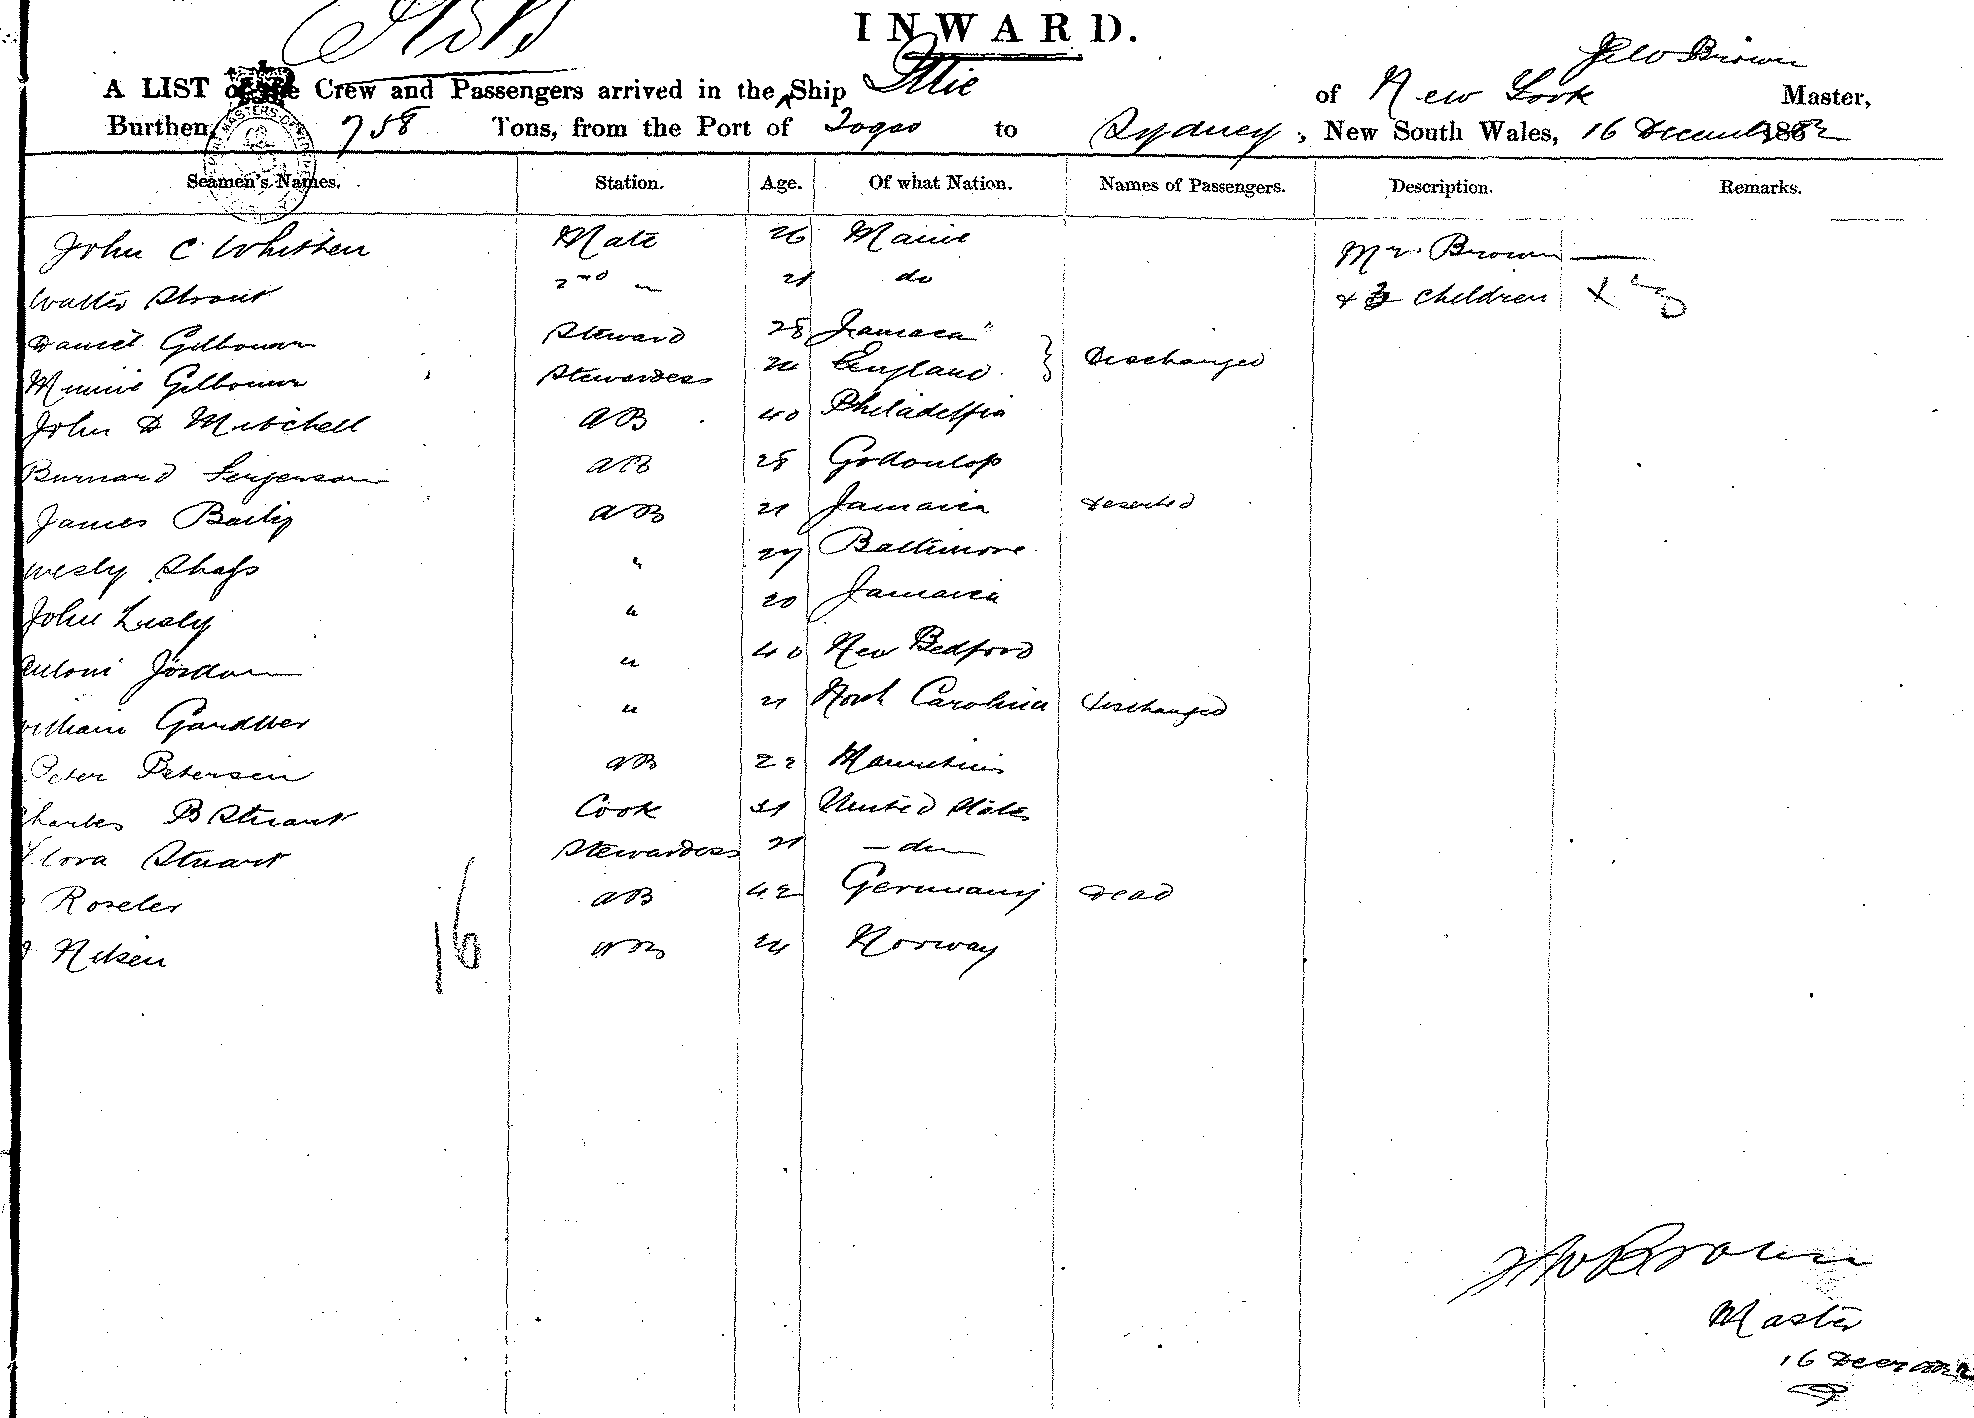 INWARD.
J W Brown
A LIST of the Crew and Passengers arrived in the Ship of New York Master,
Burthen, 758 Tons, from the Port of to Sydney, New South Wales, 16 December 1882
Seamen's Names. Station. Age. Of what Nation. Names of Passengers. Description. Remarks.
John C Whitten Mate 26 Maine Mr. Brown
Walter Strout 2nd " 21 do & 3 children
Daniel Gilbourn Steward 28 Jamaica
Minnie Gilbourn Stewardess England } Discharged
John D Mitchell AB 40 Philadelfia
Burnard AB 28
James Baily AB 21 Jamaica deserted
Wesly " 27 Baltimore
John Lesly " 20 Jamaica
Antoni Jordan " 40 New Bedford
William Gardner " 21 North Carolina discharged
Peter Petersen AB 22 Mauritius
Charles B Stuart Cook 31 United States
Flora Stuart Stewardess 21 - do -
Roseler AB 42 Germany Dead
Nilsen AB 24 Norway
16
J W Brown
Master
16 Decem